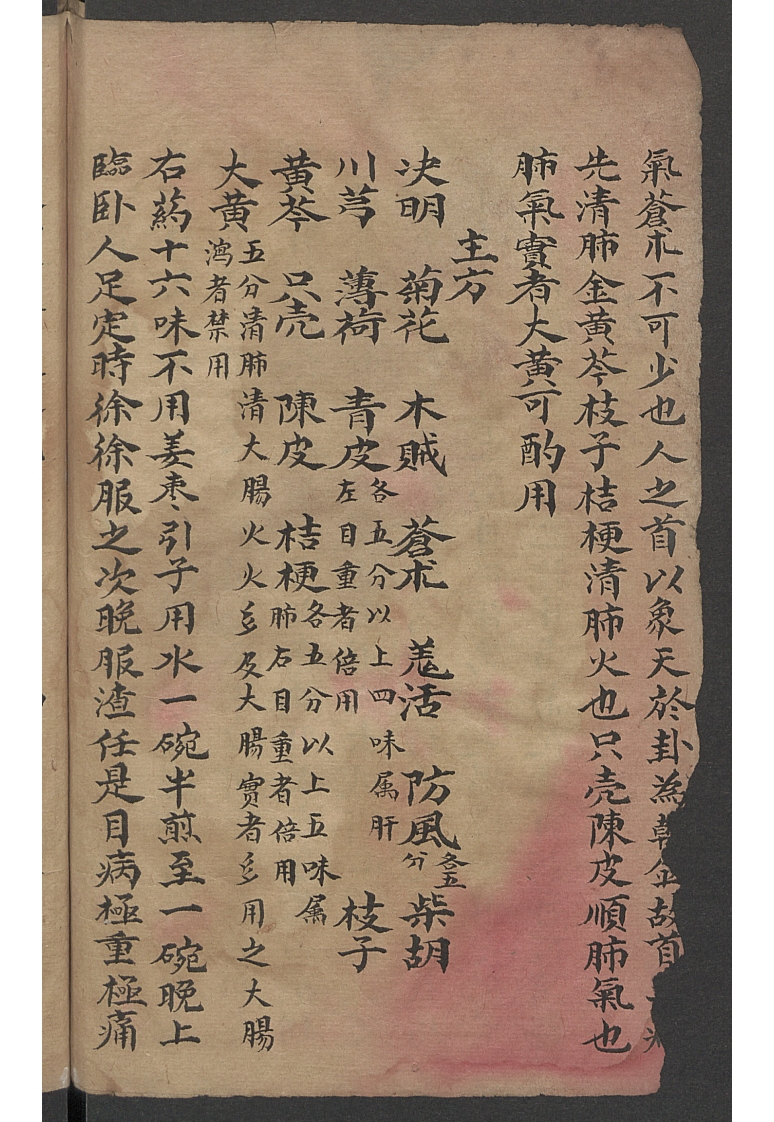 氣蒼朮不可少也人之首以象天於卦為乾金故首
先清肺金黃芩枝子桔梗清肺火也只壳陳皮順肺氣也
肺氣實者大黃可酌用
主方
決明 菊花 木賊 蒼朮 羌活 防風各五分 柴胡
川芎 薄荷 青皮各五分以上四味属肝左目重者倍用 枝子
黃芩 只壳 陳皮 桔梗各五分以上五味属肺右目重者倍用
大黃五分清肺清大腸火火彡及大腸實者彡用之大腸鴻者禁用
右葯十六味不用姜枣引子用水一碗半煎至一碗晚上
臨卧人足定時徐徐服之次晚服渣任是目病極重極痛